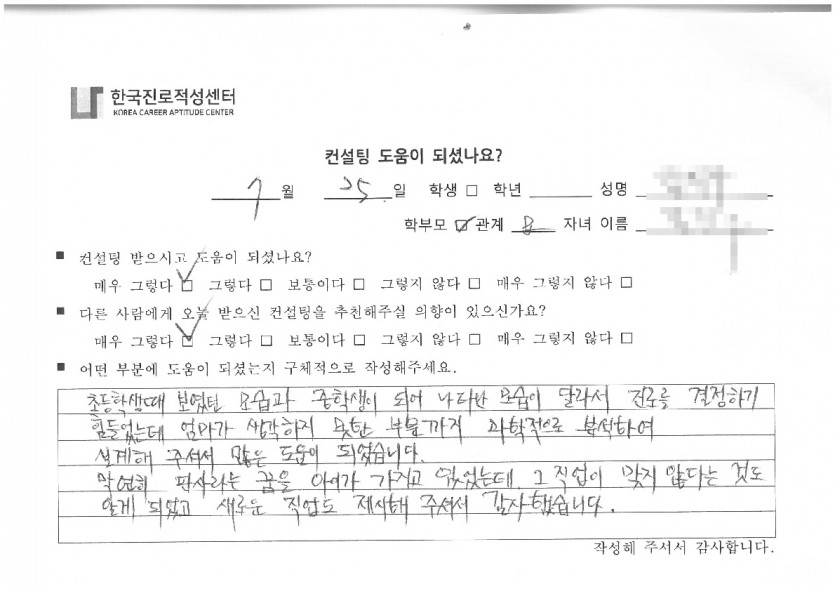 한국진로적성센터
KOREA CAREER APTITUDE CENTER
컨설팅 도움이 되셨나요?
7 월 25. 일 학생 □ 학년 성명
학부모 ☑ 관계 모 자녀 이름
■ 컨설팅 받으시고 도움이 되셨나요?
매우 그렇다 ☑ 그렇다 □ 보통이다 □ 그렇지 않다 □ 매우 그렇지 않다 □
■ 다른 사람에게 오늘 받으신 컨설팅을 추천해주실 의향이 있으신가요?
매우 그렇다 ☑ 그렇다 □ 보통이다 □ 그렇지 않다 □ 매우 그렇지 않다 □
■ 어떤 부분에 도움이 되셨는지 구체적으로 작성해주세요.
초등학생때 보였던 모습과 중학생이 되어 나타난 모습이 달라서 진로를 결정하기
힘들었는데 엄마가 생각하지 못한 부분까지 과학적으로 분석하여
설계해 주셔서 많은 도움이 되었습니다.
막연히 판사라는 꿈을 아이가 가지고 있었는데, 그 직업이 맞지 않다는 것도
알게 되었고 새로운 직업도 제시해 주셔서 감사했습니다.
작성해 주셔서 감사합니다.